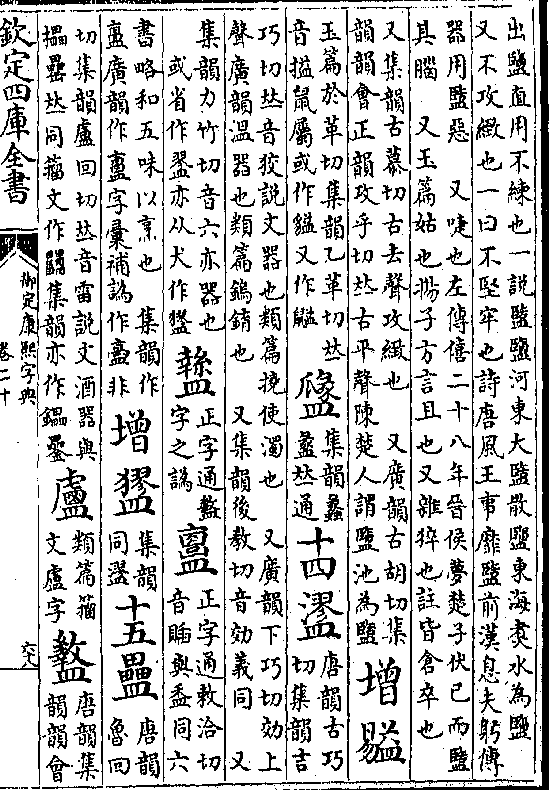 出盬直用不練也一說盬鹽河東大鹽散鹽東海煑水為鹽
又不攻緻也一曰不堅牢也詩唐風王事靡盬前漢息夫躬傳
器用盬惡　又啑也左傳僖二十八年晉侯夢楚子伏已而盬
其腦　又玉篇姑也揚子方言且也又雜猝也註皆倉卒也
又集韻古慕切古去聲攻緻也　又廣韻古胡切集
韻韻會正韻攻乎切𠀤古平聲陳楚人謂鹽池為盬
增
玉篇於革切集韻乙革切𠀤
音搤鼠屬或作貖又作
集韻蠡
蠡𠀤通
十四
唐韻古巧
切集韻吉
巧切𠀤音狡說文器也類篇撓使濁也　又廣韻下巧切効上
聲廣韻溫器也類篇鎢錥也　又集韻後教切音効義同　又
集韻力竹切音六亦器也
或省作亦从犬作
正字通盭
字之譌
正字通敕洽切
音與盉同六
書略和五味以烹也　集韻作
廣韻作字彙補譌作非
增
集韻
同
十五
唐韻
魯回
切集韻盧回切𠀤音雷說文酒器與
櫑罍𠀤同籀文作集韻亦作鑘
盧
類篇籀
文盧字
盭
唐韻集
韻韻會
欽定四庫全書
御定康熙字典
卷二十